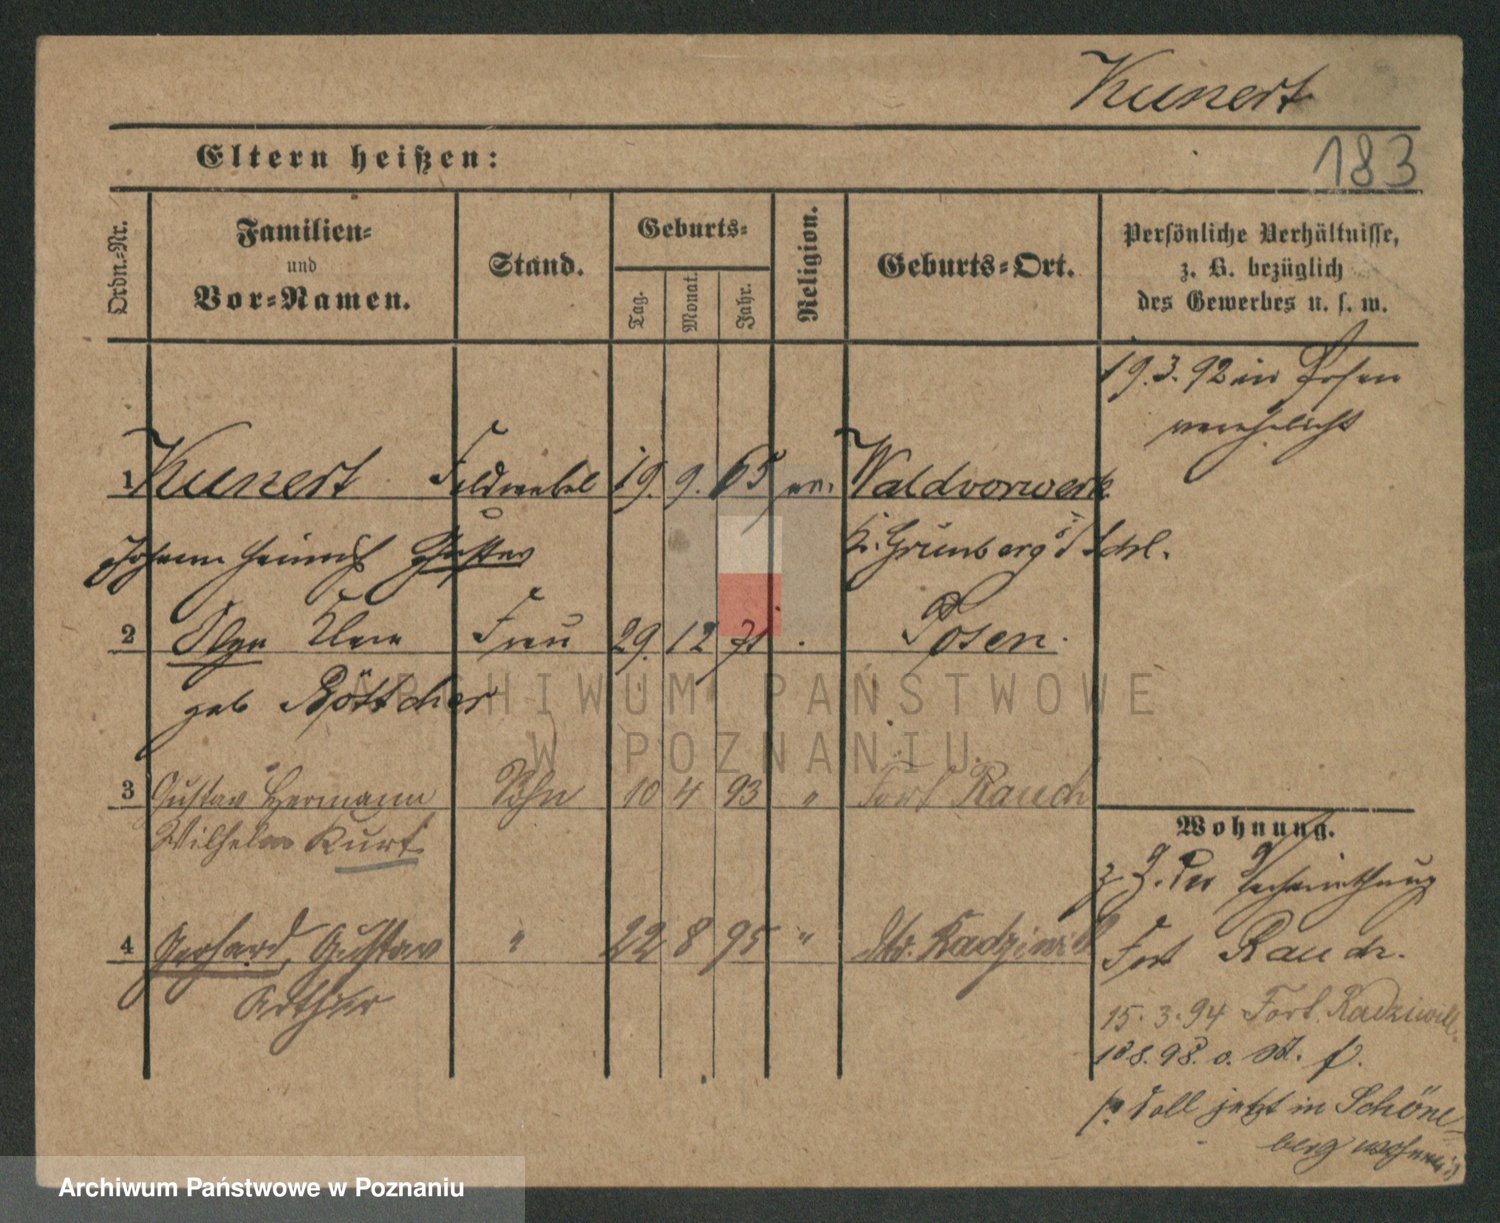 Kunert
183
Eltern heißen:
Ordn.-Nr.
Familien-
und
Vor-Namen.
Stand.
Geburts-
Tag.
Monat.
Jahr.
Religion.
Geburts-Ort.
Persönliche Verhältnisse,
z. B. bezüglich
des Gewerbes u. s. w.
19.3.92 in Posen
verehelicht
1 Kunert Feldwebel 19. 9. 65 ev. Waldvorwerk
Johann Heinrich Gustav Kr. Grünberg i/Schl.
2 Olga Clara Frau 29. 12 71 Posen.
geb Böttcher
3 Gustav Hermann Sohn 10 4 93 " Fort Rauch
Wilhelm Kurt
Wohnung.
z. Z. der Verheirathung
4 Gerhard, Gustav " 22 8 95 " dto. Radziwill
Fort Rauch.
Arthur
15.3.94 Fort Radziwill.
18.8.98. o. M. f.
soll jetzt in Schöne-
berg wohnen
ARCHIWUM PAŃSTWOWE
W POZNANIU
Archiwum Państwowe w Poznaniu